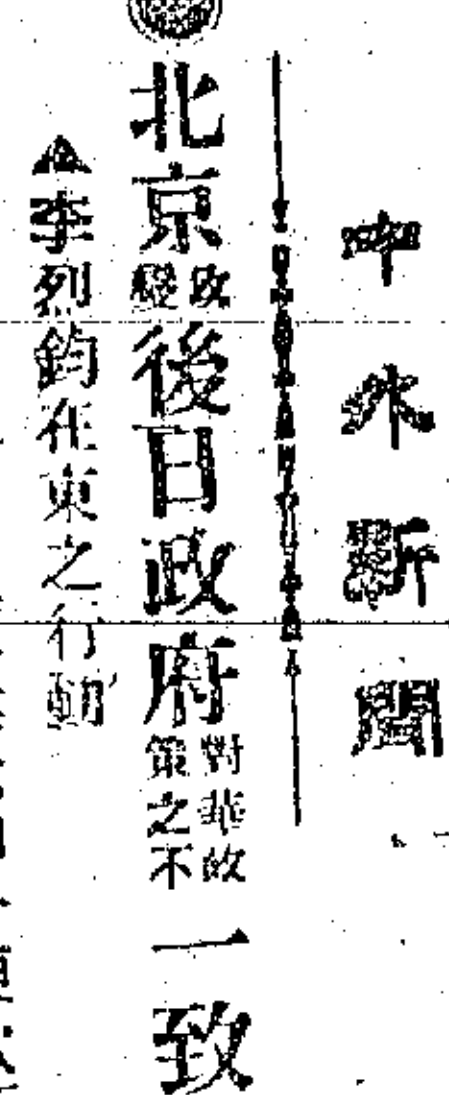 中外新聞
北京政變後日政府對華政策之不一致
▲李烈鈞在東之行動